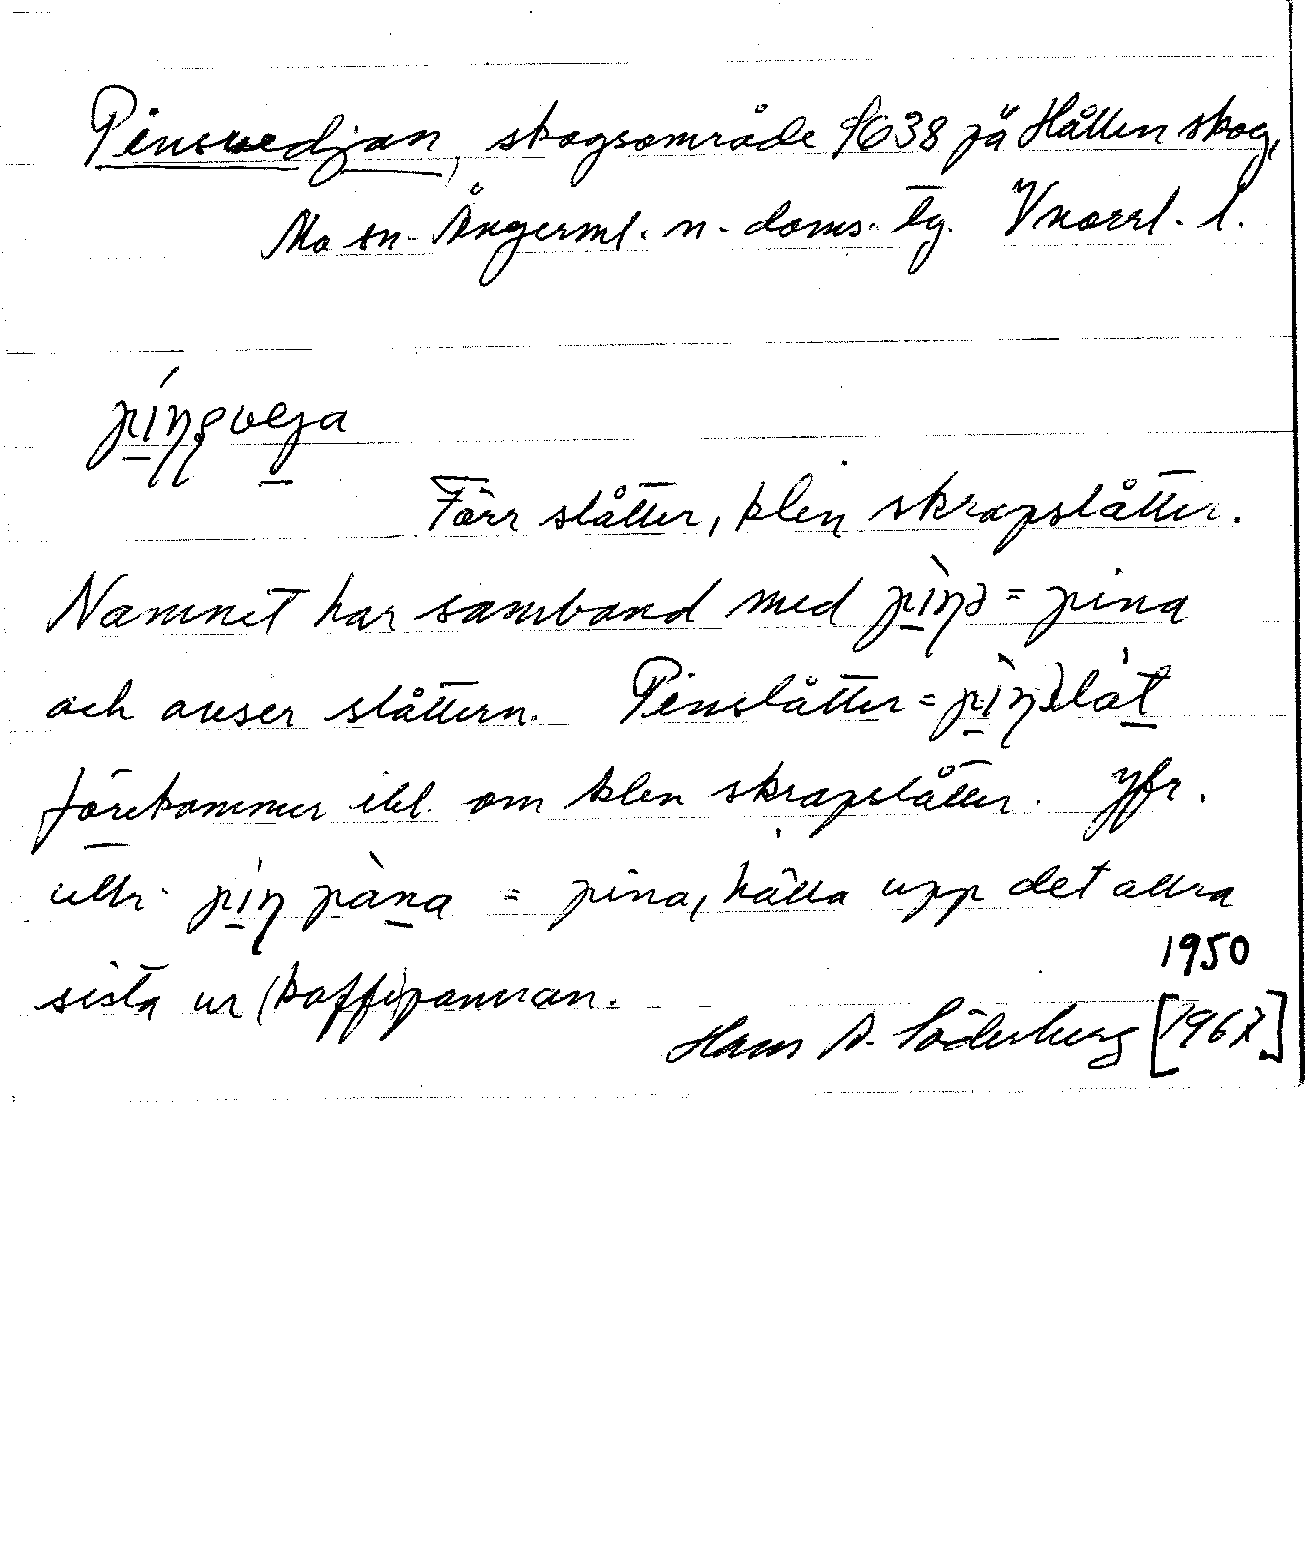 Pinsvedjan, skogsområde 9638 på Hållen skog,
Mo sn. Ångerml. n. doms. tg. Vnorrl. l.
Förr slåtter, klen skrapslåtter.
Namnet har samband med = pina
och avser slåttern. Pinslåtter =
förekommer ibl. om klen skrapslåtter. Jfr.
uttr. = pina, hälla upp det allra
sista ur (kaffe)pannan.
1950
Hans A. Söderberg [1967]